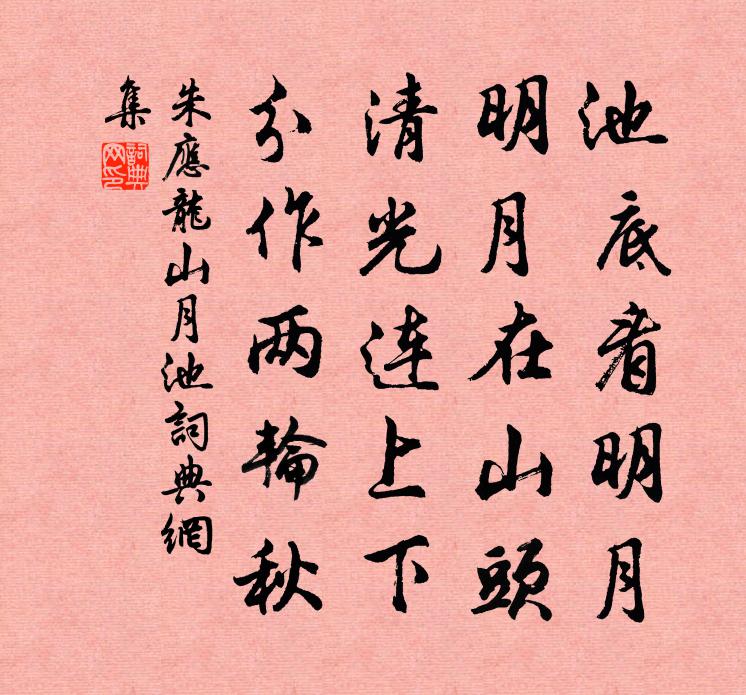 池底看明月
明月在山頭
清光连上下
分作两輪秋
朱應龍山月池詞典網
集
詞典
网印